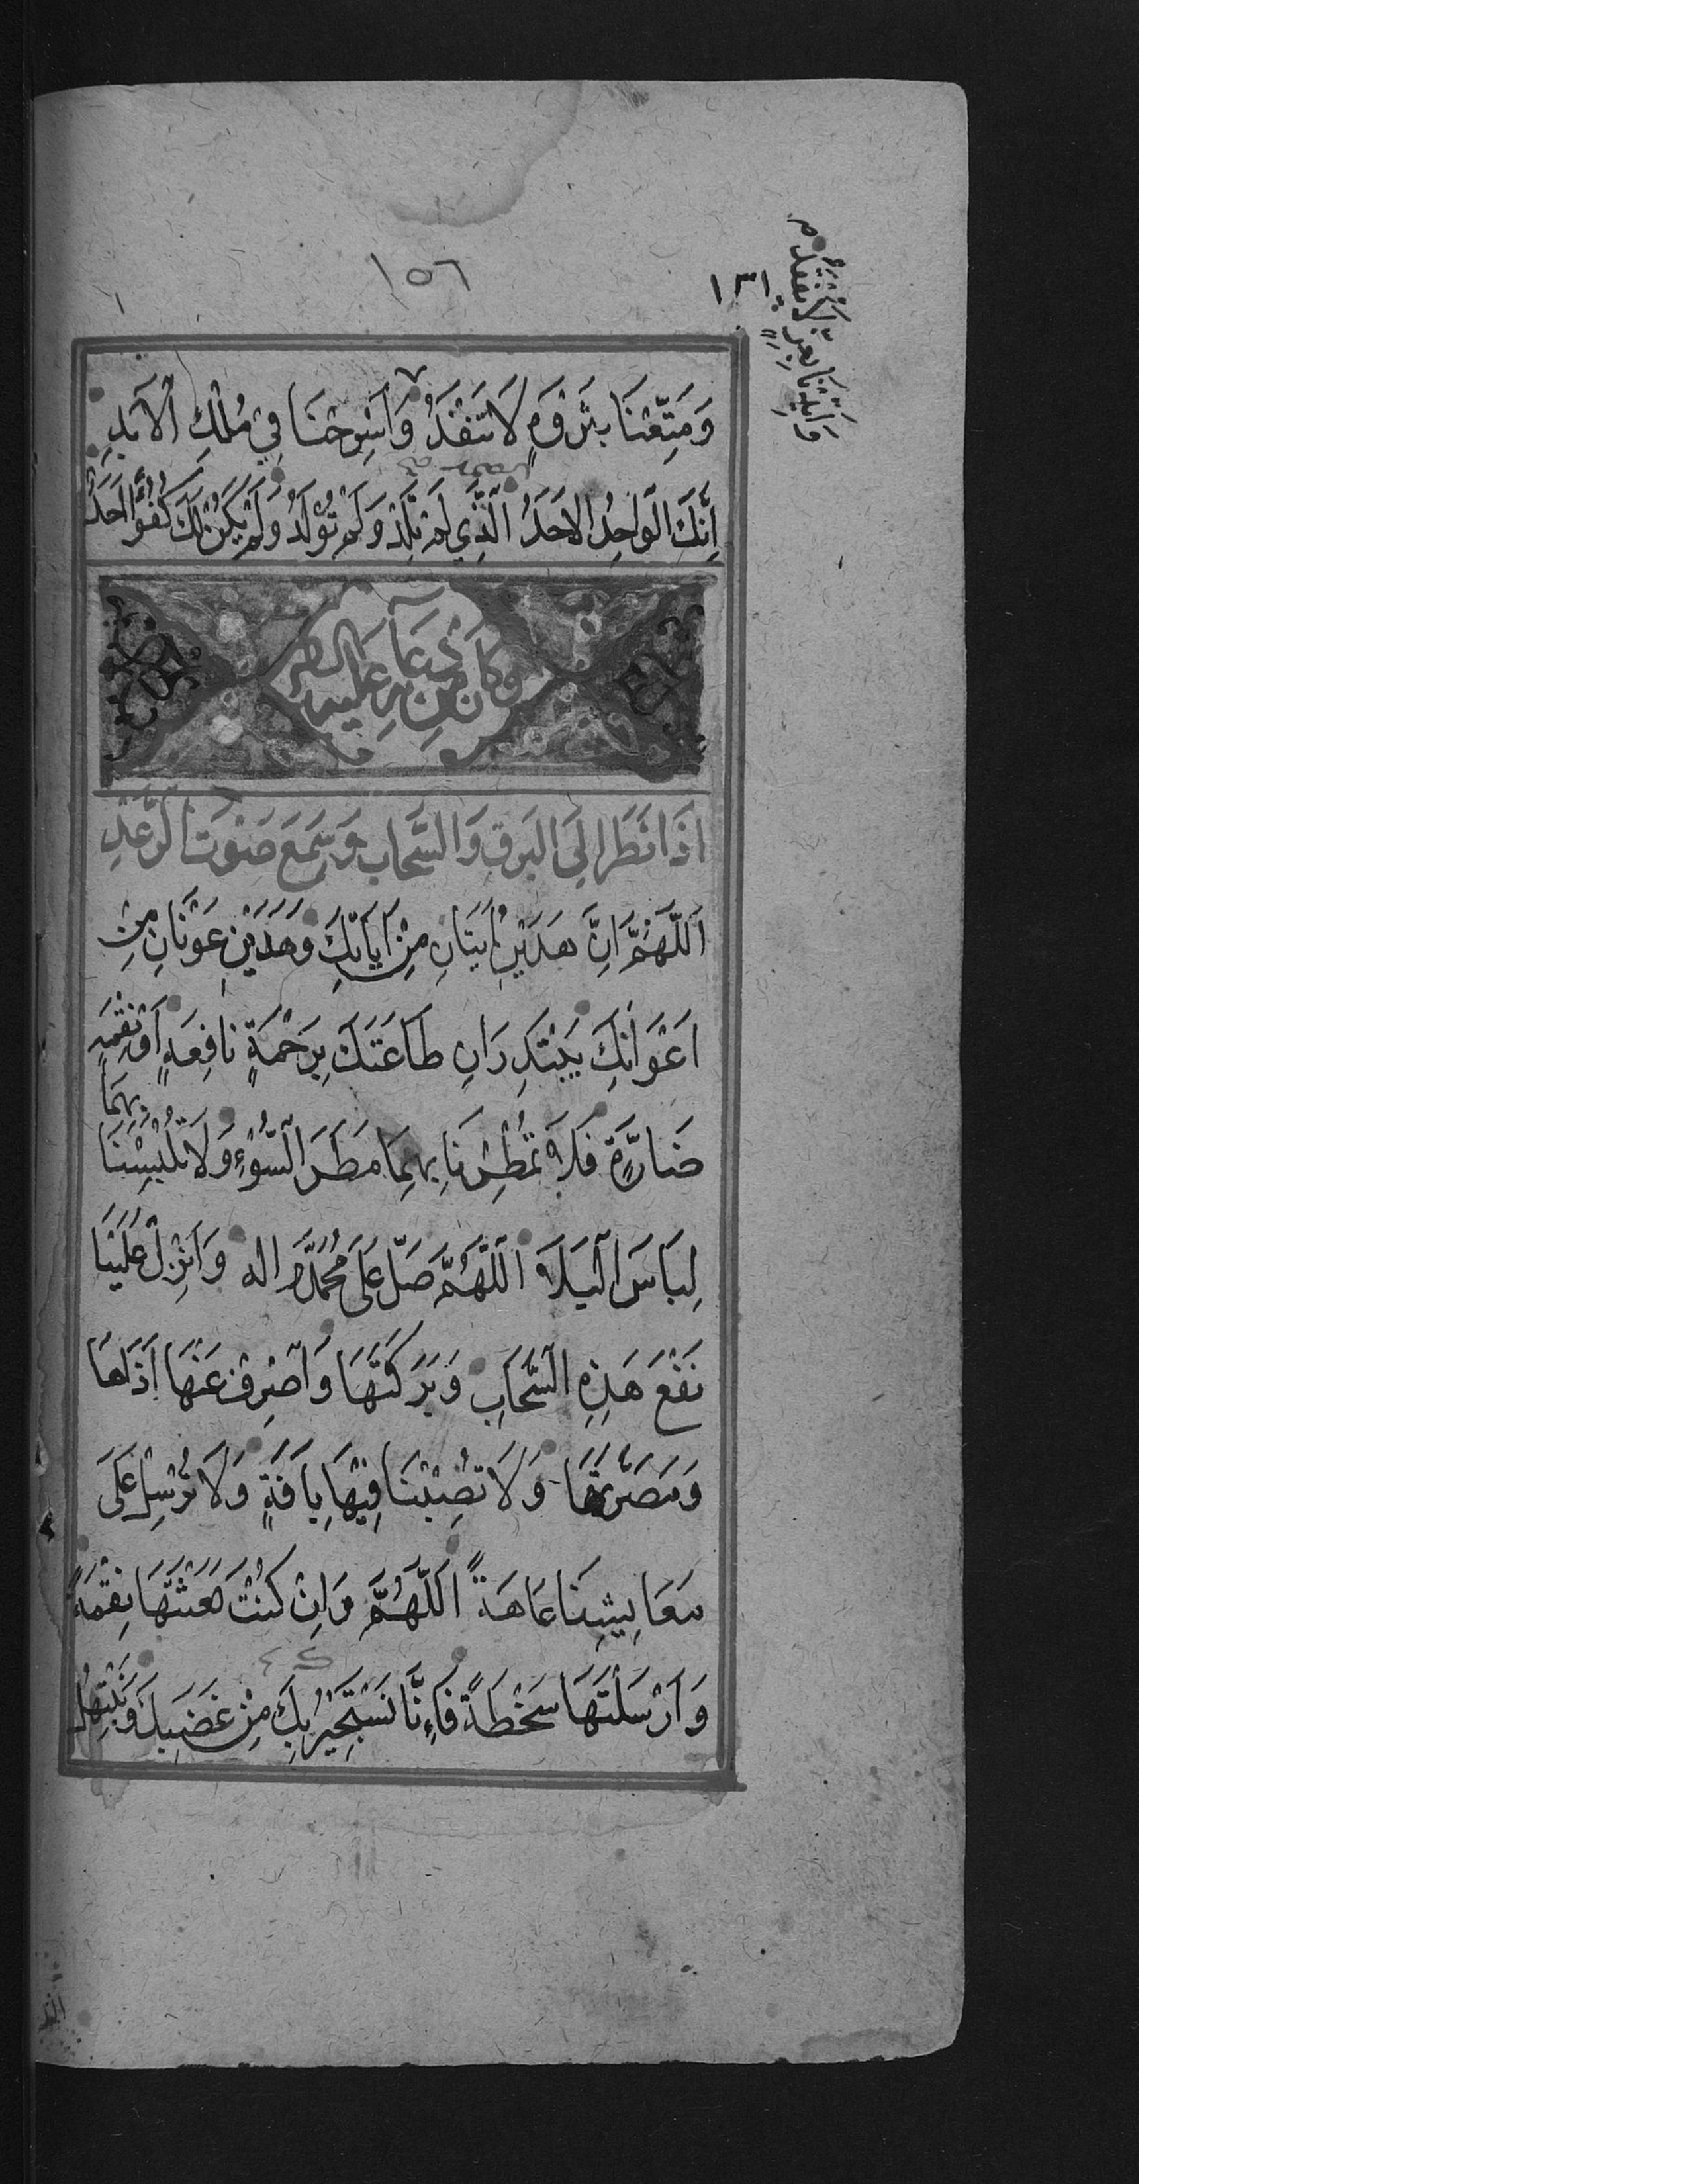 ١٥٦
١٣١
وَاَيِّدْنَا بِعِزٍّ لَا يُفْقَدُ م
وَمَتِّعْنَا بِثَرْوَةٍ لَا تَنْفَدُ وَاسْرَحْنَا فِيْ مُلْكِ الْاَبَدِ
اِنَّكَ الْوَاحِدُ الْاَحَدُ الَّذِي لَمْ تَلِدْ وَلَمْ تُوْلَدْ وَلَمْ يَكُنْ لَكَ كُفُوًا اَحَدٌ
وَكَانَ مِنْ دُعَائِهِ عَلَيْهِ السلام
اِذَا نَظَرَ اِلَى الْبَرْقِ وَالسَّحَابِ وَسَمِعَ صَوْتَ الرَّعْدِ
اَللّٰهُمَّ اِنَّ هَذَيْنِ اٰيَتَانِ مِنْ اٰيَاتِكَ وَهَذَيْنِ عَوْنَانِ مِنْ
اَعْوَانِكَ يَبْتَدِرَانِ طَاعَتَكَ بِرَحْمَةٍ نَافِعَةٍ اَوْ نَقِمَةٍ
ضَارَّةٍ فَلَا تُمْطِرْنَا بِهِمَا مَطَرَ السَّوْءِ وَلَا تُلْبِسْنَا بِهِمَا
لِبَاسَ الْبَلَاءِ اَللّٰهُمَّ صَلِّ عَلَى مُحَمَّدٍ واله وَاَنْزِلْ عَلَيْنَا
نَفْعَ هَذِهِ السَّحَابِ وَبَرَكَتَهَا وَاصْرِفْ عَنَّا اَذَاهَا
وَمَضَرَّتَهَا وَلَا تُصِبْنَا فِيْهَا بِاٰفَةٍ وَلَا تُرْسِلْ عَلَى
مَعَايِشِنَا عَاهَةً اَللّٰهُمَّ وَاِنْ كُنْتَ بَعَثْتَهَا نِقْمَةً
وَاَرْسَلْتَهَا سَخْطَةً فَاِنَّا نَسْتَجِيْرُ بِكَ مِنْ غَضَبِكَ وَنَبْتَهِلُ